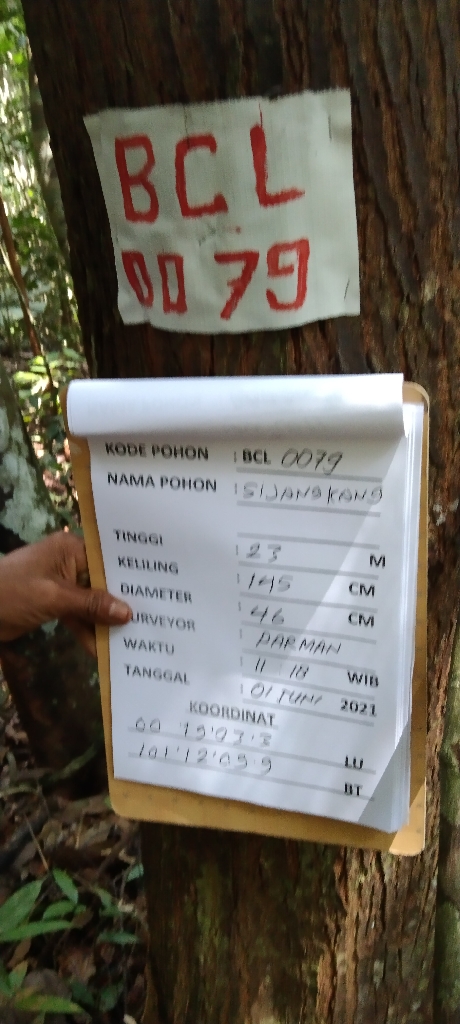 BCL
0079
KODE POHON : BCL 0079
NAMA POHON : SIJANGKANG
TINGGI : 23 M
KELILING : 145 CM
DIAMETER : 46 CM
SURVEYOR : PARMAN
WAKTU : 11 : 18 WIB
TANGGAL : 01 JUNI 2021
KOORDINAT
LU
BT